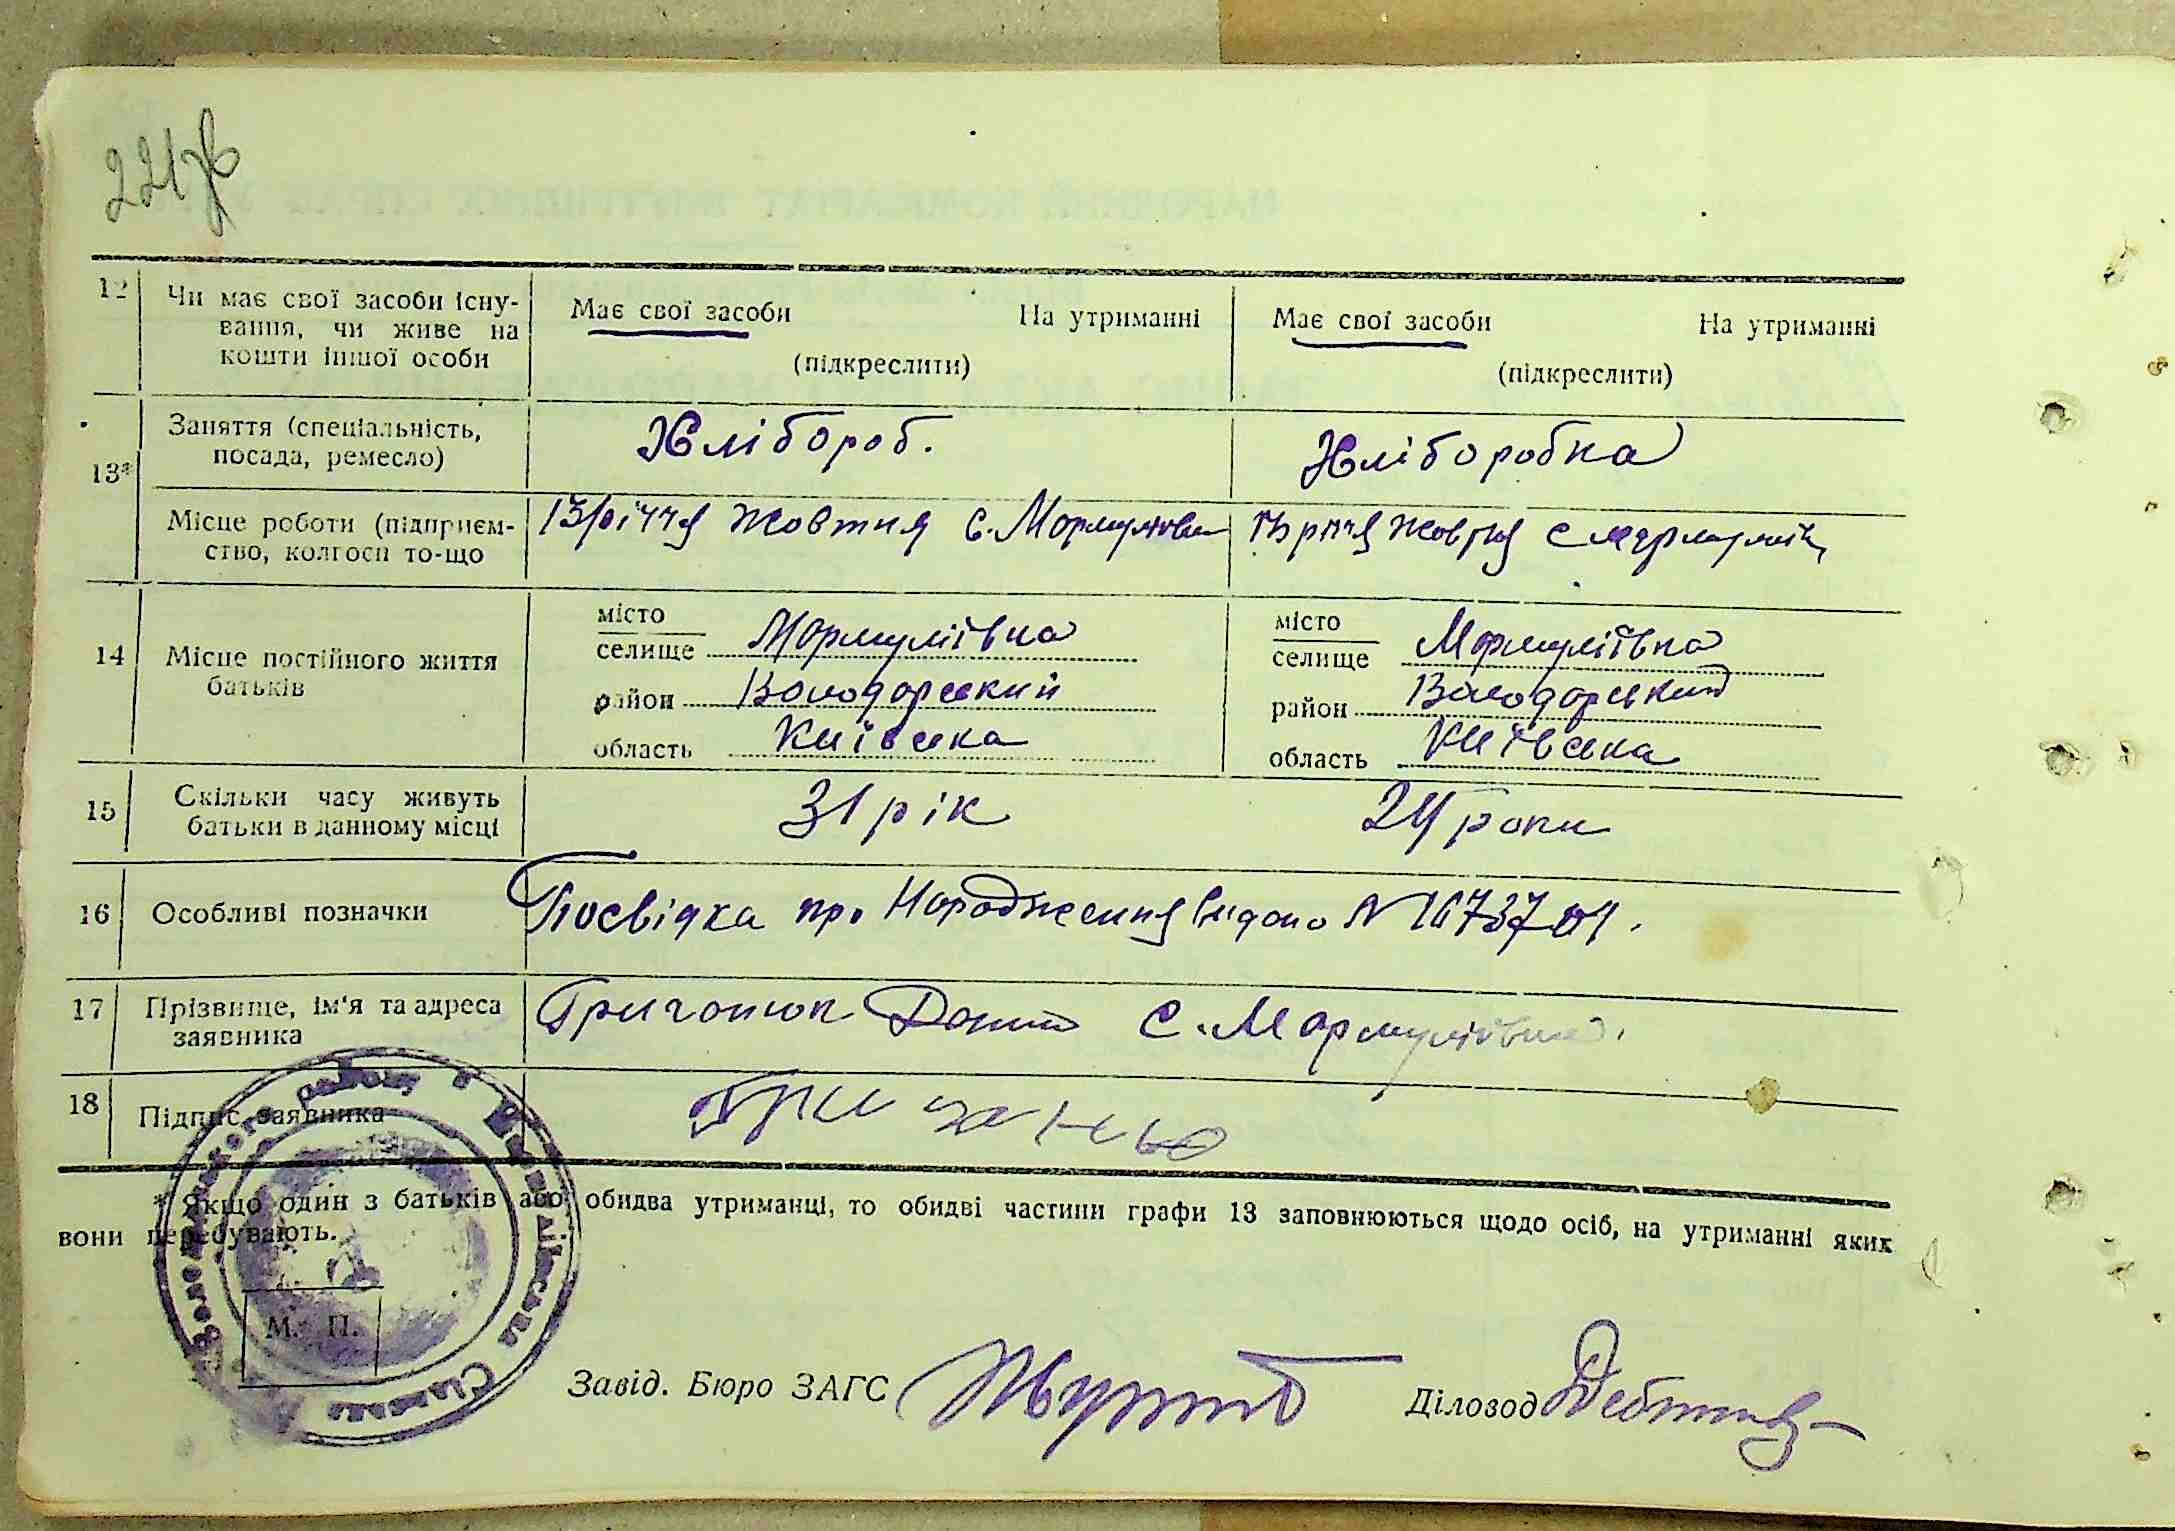 221зв
12 Чи має свої засоби існу-
вання, чи живе на
кошти іншої особи
Має свої засоби На утриманні
(підкреслити)
Має свої засоби На утриманні
(підкреслити)
13* Заняття (спеціальність,
посада, ремесло)
Хлібороб.
Хліборобка
Місце роботи (підприєм-
ство, колгосп то-що
13 річчя жовтня с. Мармуліївка
13 річчя жовтня с Мармуліївка
14 Місце постійного життя
батьків
місто
селище Мармуліївка
район Володарський
область Київська
місто
селище Мармуліївка
район Володарський
область Київська
15 Скільки часу живуть
батьки в данному місці
31 рік
24 роки
16 Особливі позначки
Посвідка про Народження видано №
17 Прізвище, ім'я та адреса
заявника
с. Мармуліївка.
18 Підпис заявника
* Якщо один з батьків або обидва утриманці, то обидві частини графи 13 заповнюються щодо осіб, на утриманні яких
вони перебувають.
М. П.
Завід. Бюро ЗАГС
Діловод